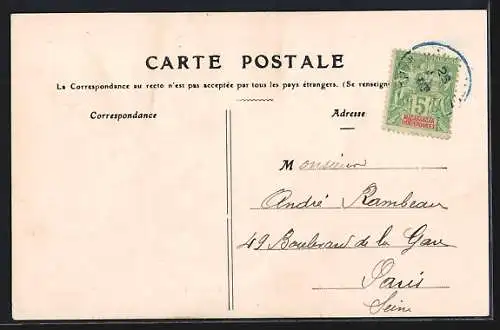 CARTE POSTALE
La Correspondance au recto n'est pas acceptée par tous les pays étrangers. (Se renseign
Correspondance
Adresse
5
MADAGASCAR
ET DÉPENDANCES
Monsieur
André Rambeau
49 Boulevard de la Gare
Paris
Seine